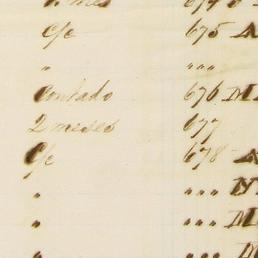 mes 674
C/c 675 A
" """
Contado 676 M
2 meses 677
C/c 678 A
" """ N
" """ M
" """ M